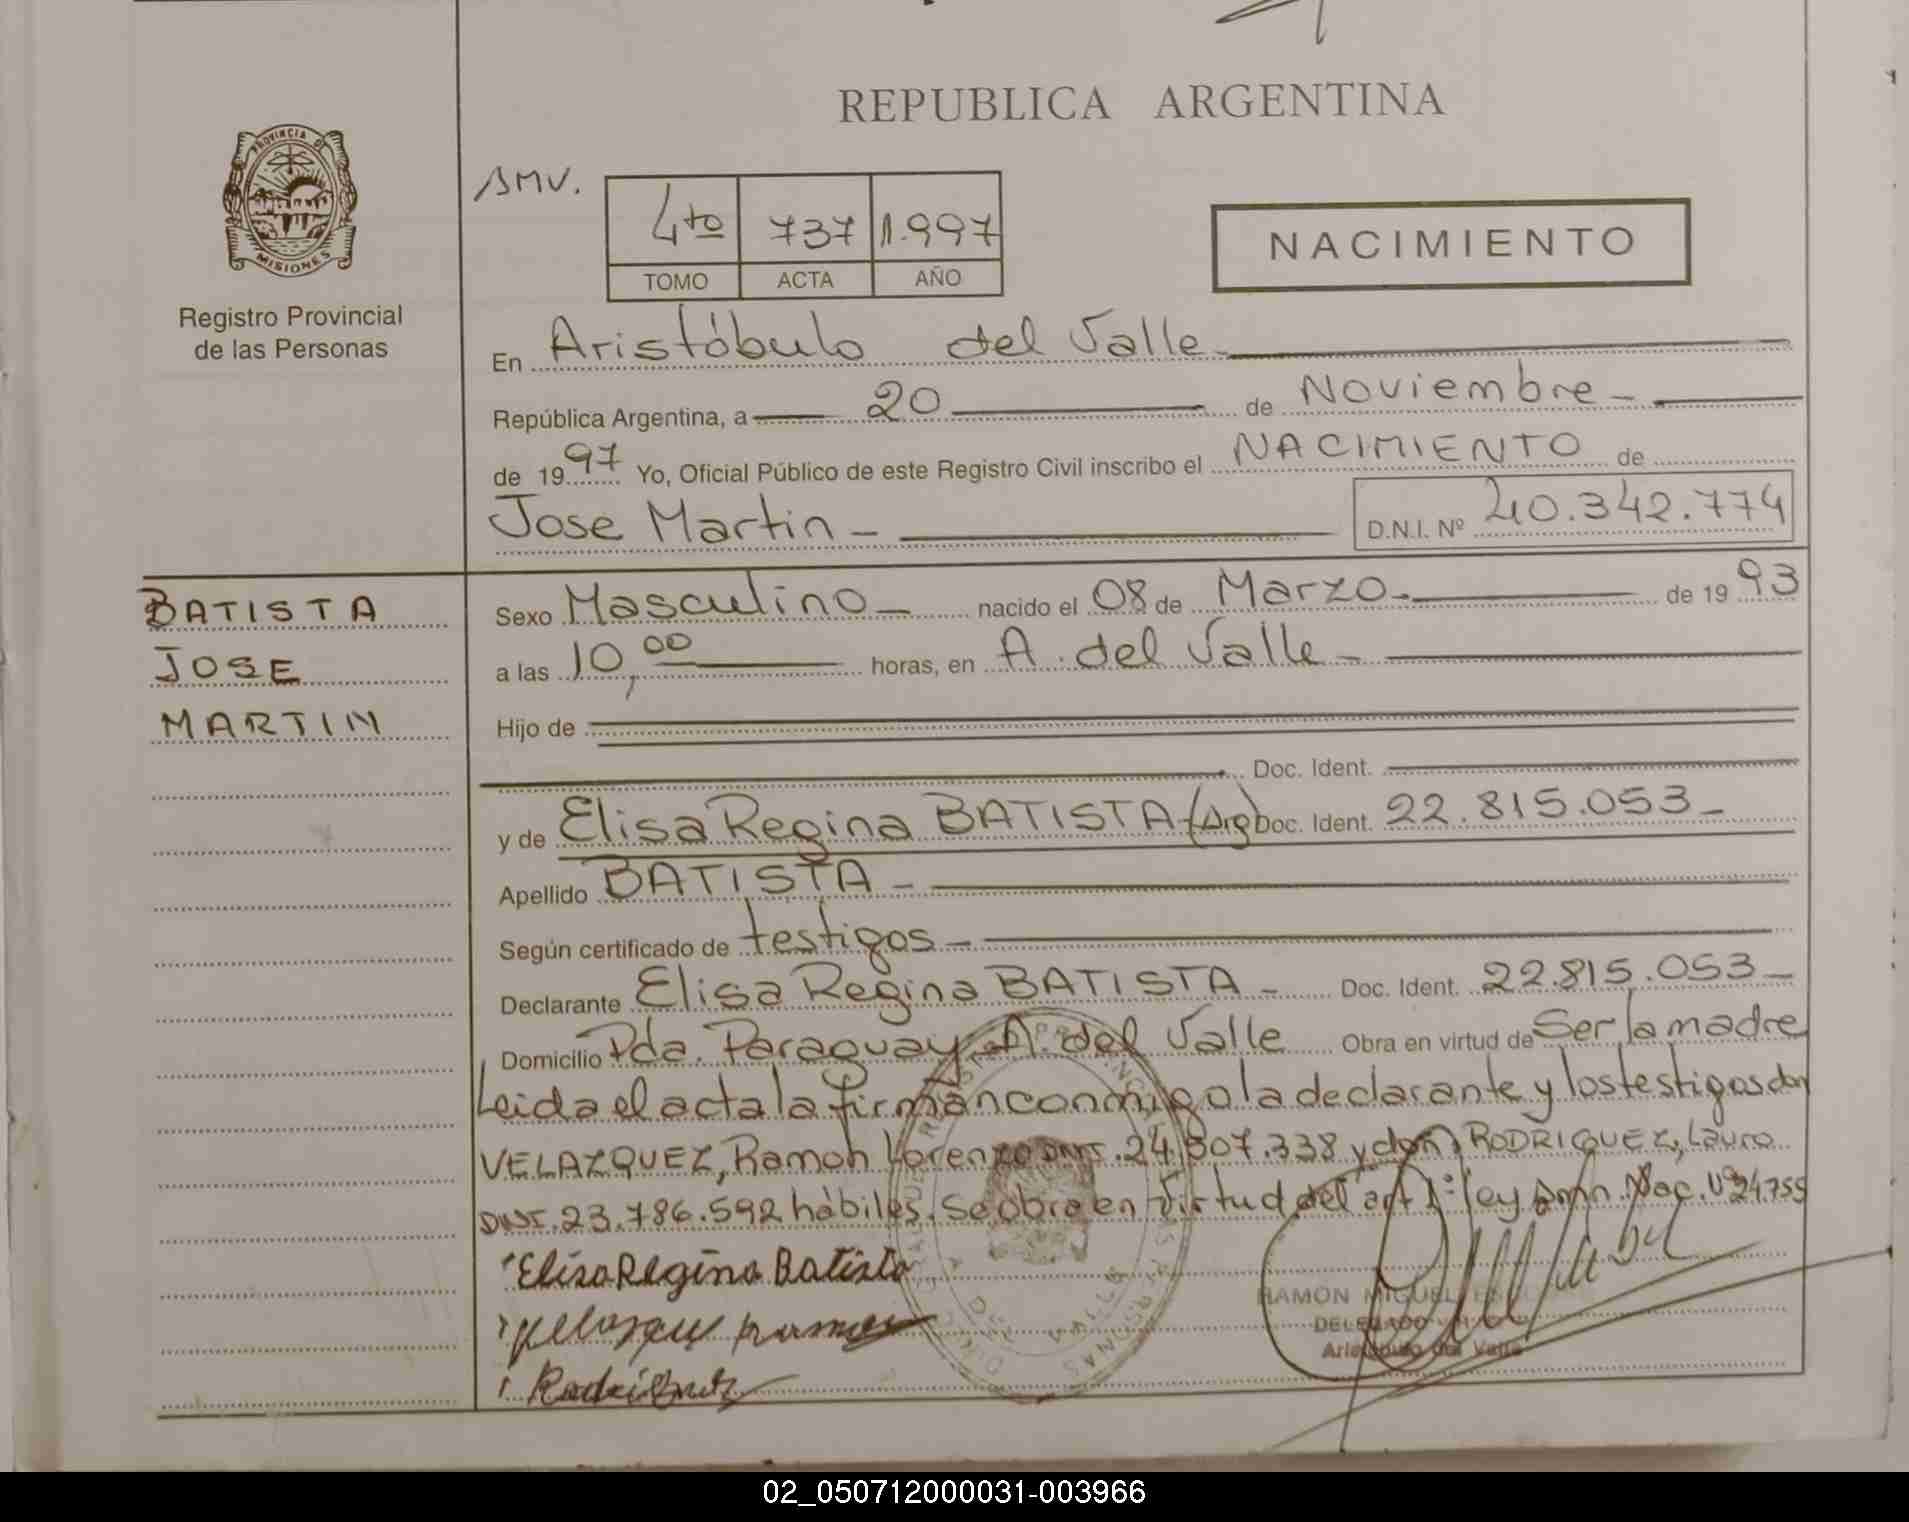 REPUBLICA ARGENTINA
PROVINCIA DE
MISIONES
Registro Provincial
de las Personas
4to 737 1.997
TOMO ACTA AÑO
NACIMIENTO
En Aristóbulo del Valle
República Argentina, a 20 de Noviembre
de 1997 Yo, Oficial Público de este Registro Civil inscribo el NACIMIENTO de
Jose Martin D.N.I. Nº 40.342.774
BATISTA
JOSE
MARTIN
Sexo Masculino nacido el 08 de Marzo de 1993
a las 10,00 horas, en A. del Valle
Hijo de
Doc. Ident.
y de Elisa Regina BATISTA (Arg) Doc. Ident. 22.815.053
Apellido BATISTA
Según certificado de testigos
Declarante Elisa Regina BATISTA Doc. Ident. 22.815.053
Domicilio Pda. Paraguay A. del Valle Obra en virtud de Ser la madre
Leida el acta la firman conmigo la declarante y los testigos don
VELAZQUEZ, Ramon Lorenzo DNI. 24.807.338 y don RODRIGUEZ, Lauro
DNI. 23.786.592 hábiles. Se obra en virtud del art 1º ley Nac. Nº 24.755
Elisa Regina Batista
RAMON MIGUEL
DELEGADO
Aristobulo del Valle
Rodriguez
02_050712000031-003966